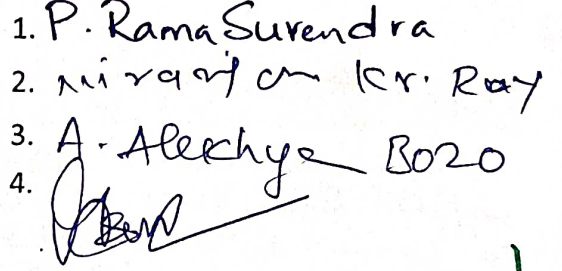 1. P. Rama Surendra
2. Niranjan Kr. Ray
3. A. Alekhya Bozo
4.